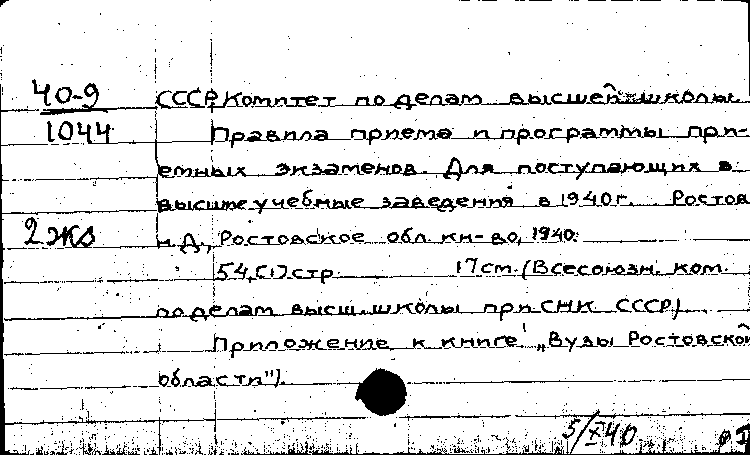 40-9
1044
2 экз
СССР, Комитет по делам высшей школы.
Правила приема и программы при-
емных экзаменов. Для поступающих в
высшие учебные заведения в 1940 г. Ростов
н.Д., Ростовское обл. кн-во, 1940.
54,[1] стр. 17 cm. (Всесоюзн. ком.
по делам высш. школы при СНК СССР).
Приложение к книге: „Вузы Ростовской
области").
5/X 40